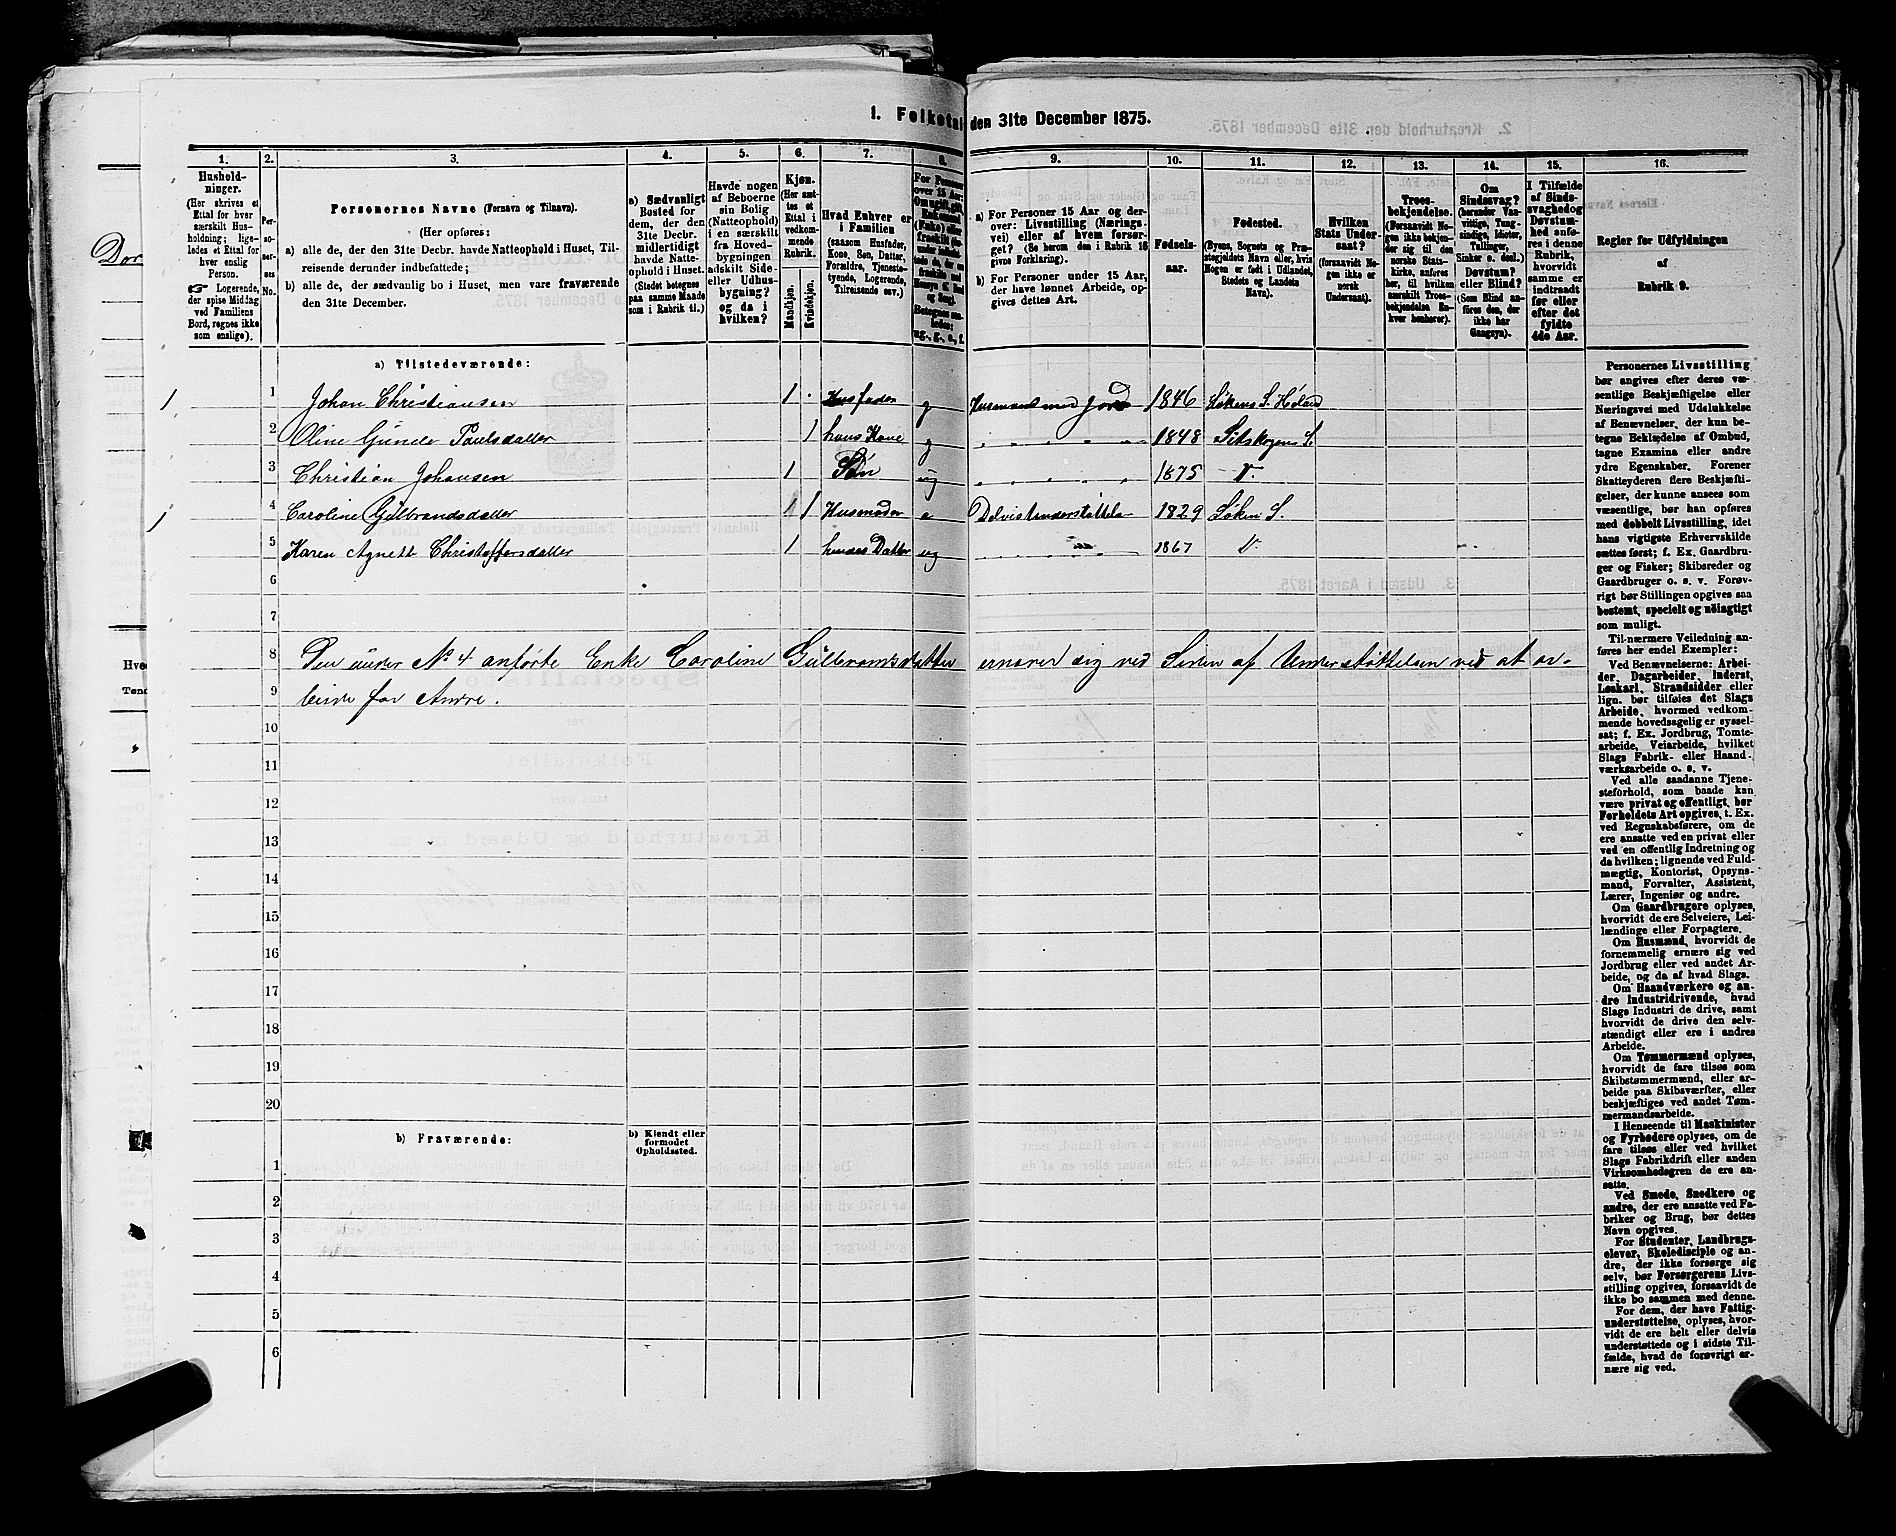 1. Folketal den 31te December 1875.
1. 2. 3. 4. 5. 6. 7. 8. 9. 10. 11. 12. 13. 14. 15. 16.
Hushold-
ninger.
(Her skrives et
Ettal for hver
særskilt Hus-
holdning; lige-
ledes et Ettal for
hver enslig
Person.
☞ Logerende,
der spise Middag
ved Familiens
Bord, regnes ikke
som enslige).
Per-
so-
ner-
nes
No.
Personernes Navne (Fornavn og Tilnavn).
(Her opføres:
a) alle de, der den 31te Decbr. havde Natteophold i Huset, Til-
reisende derunder indbefattede;
b) alle de, der sædvanlig bo i Huset, men vare fraværende
den 31te December.
a) Sædvanligt
Bosted for
dem, der den
31te Decbr.
midlertidigt
havde Natte-
ophold i Huset.
(Stedet betegnes
paa samme Maade
som i Rubrik 11.)
Havde nogen
af Beboerne
sin Bolig
(Natteophold)
i en særskilt
fra Hoved-
bygningen
adskilt Side-
eller Udhus-
bygning?
og da i
hvilken?
Kjøn.
(Her sæt-
tes et
Ettal i
vedkom-
mende
Rubrik.
Mandkjøn.
Kvindekjøn.
Hvad Enhver er
i Familien
(saasom Husfader,
Kone, Søn, Datter,
Forældre, Tjeneste-
tyende, Logerende,
Tilreisende osv.)
For Personer
over 15 Aar:
a) For Personer 15 Aar og der-
over: Livsstilling (Nærings-
vei) eller af hvem forsør-
get? (Se herom den i Rubrik 16
givne Forklaring).
b) For Personer under 15 Aar,
der have lønnet Arbeide, op-
gives dettes Art.
Fødsels-
aar.
Fødested.
(Byens, Sognets og Præ-
stegjeldets Navn eller, hvis
Nogen er født i Udlandet,
Stedets og Landets
Navn).
Hvilken
Stats Under-
saat?
(forsaavidt No-
gen ikke er
norsk
Undersaat).
Troes-
bekjendelse.
(Forsaavidt No-
gen ikke bekjen-
der sig til den
norske Stats-
kirke, anføres
her, til hvilken
særskilt Troes-
bekjendelse En-
hver henhører).
Om
Sindssvag?
(herunder Van-
vittige, Tung-
sindige, Idioter,
Tullinger,
Sinker o. desl.)
Døvstum?
eller Blind?
(Som Blind an-
føres den, der
ikke har
Gangsyn).
I Tilfælde
af Sinds-
svaghed og
Døvstum-
hed anfø-
res i denne
Rubrik,
hvorvidt
samme er
indtraadt
før eller
efter det
fyldte
4de Aar.
Regler for Udfyldningen
af
Rubrik 9.
a) Tilstedeværende:
1 1 Johan Christiansen 1 Husfader g Husmand med Jord 1846 Søkens S. Høland
2 Oline Gunde Paulsdatter 1 hans Kone g " " " " " 1848 Setskogens S.
3 Christian Johansen 1 Søn ug " " " " " 1875 V.
1 4 Caroline Gulbrandsdatter 1 Husmoder e Delvist understøttelse 1829 Søken S.
5 Karen Agnett Christoffersdatter 1 hendes Datter ug 1867 V
6
7
8 Den under No 4 anførte Enke Caroline Gulbramsdatter ernærer sig ved Siden af Understøttelsen ved at ar-
9 beide for Andre.
10
11
12
13
14
15
16
17
18
19
20
b) Fraværende:
b) Kjendt eller
formodet
Opholdssted.
1
2
3
4
5
6
Personernes Livsstilling
bør angives efter deres væ-
sentlige Beskjæftigelse eller
Næringsvei med Udelukkelse
af Benævnelser, der kun be-
tegne Beklædelse af Ombud,
tagne Examina eller andre
ydre Egenskaber. Forener
Skatteyderen flere Beskjæfti-
gelser, der kunne ansees som
væsentlige, bør han opføres
med dobbelt Livsstilling, idet
hans vigtigste Erhvervskilde
sættes først; f. Ex. Gaardbru-
ger og Fisker; Skibsreder og
Gaardbruger o. s. v. Forøv-
rigt bør Stillingen opgives saa
bestemt, specielt og nöiagtigt
som muligt.
Til nærmere Veiledning an-
føres her endel Exempler:
Ved Benævnelserne: Arbei-
der, Dagarbeider, Inderst,
Løskarl, Strandsidder eller
lign. bør tilføies det Slags
Arbeide, hvormed vedkom-
mende hovedsagelig er syssel-
sat; f. Ex. Jordbrug, Tomte-
arbeide, Veiarbeide, hvilket
Slags Fabrik- eller Haand-
værksarbeide o. s. v.
Ved alle saadanne Tjene-
steforhold, som baade kan
være privat og offentligt, bør
Forholdets Art opgives, t. Ex.
ved Regnskabsførere, om de
ere ansatte ved en privat eller
ved en offentlig Indretning og
da hvilken; lignende ved Fuld-
mægtig, Kontorist, Opsyns-
mand, Forvalter, Assistent,
Lærer, Ingeniør og andre.
Om Gaardbrugere oplyses,
hvorvidt de ere Selveiere, Lei-
lændinge eller Forpagtere.
Om Husmænd, hvorvidt de
fornemmelig ernære sig ved
Jordbrug eller ved andet Ar-
beide, og da af hvad Slags.
Om Haandværkere og an-
dre Industridrivende, hvad
Slags Industri de drive, samt
hvorvidt de drive den selv-
stændigt eller ere i andres
Arbeide.
Om Tømmermænd oplyses,
hvorvidt de fare tilsøs som
Skibstømmermænd, eller ar-
beide paa Skibsværfter, eller
beskjæftiges ved andet Tøm-
mermandsarbeide.
I Henseende til Maskinister
og Fyrbødere oplyses, om de
fare tilsøs eller ved hvilket
Slags Fabrikdrift eller anden
Virksomhedsgren de ere an-
satte.
Ved Smede, Snedkere og
andre, der ere ansatte ved Fa-
briker og Brug, bør dettes
Navn opgives.
For Studenter, Landbrugs-
elever, Skoledisciple og an-
dre, der ikke forsørge sig
selv, bør Forsørgerens Livs-
stilling opgives, forsaavidt de
ikke bo sammen med denne.
For dem, der have Fattig-
understøttelse, oplyses, hvor-
vidt de ere helt eller delvis
understøttede og i sidste Til-
fælde, hvad de forøvrigt er-
nære sig ved.